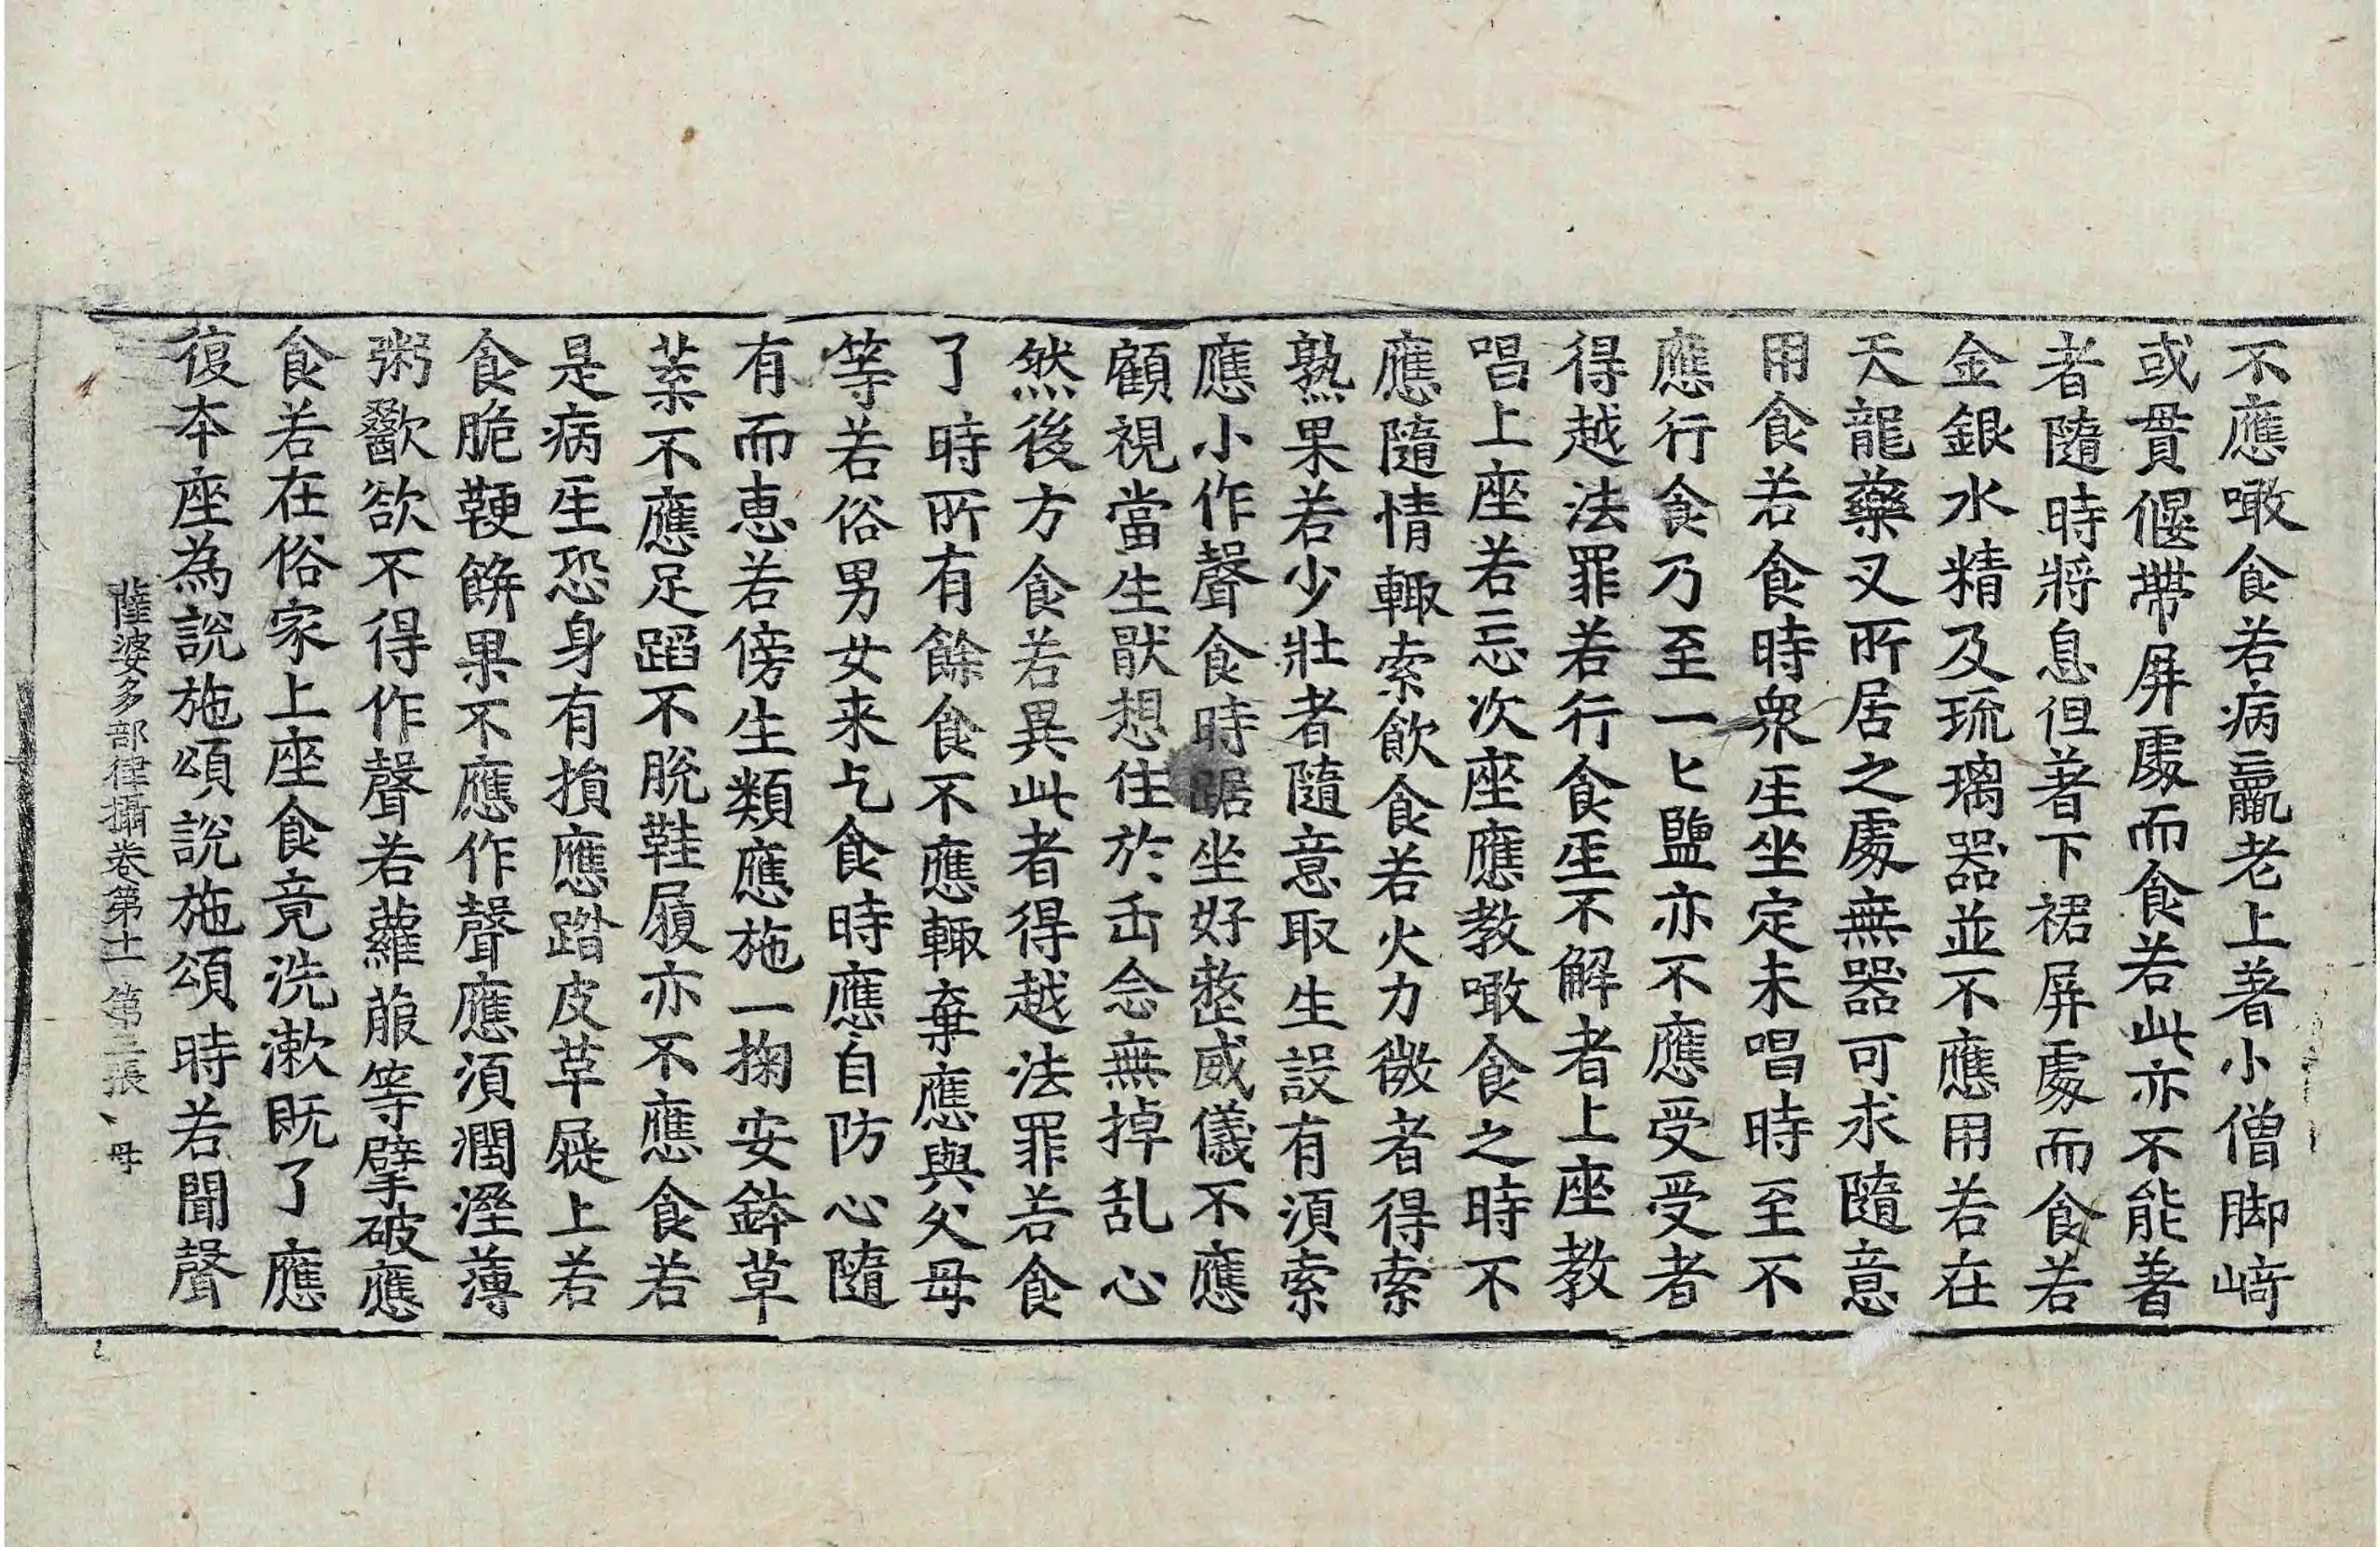 不應噉食若病羸老上著小僧脚崎
或貫偃帶屏處而食若此亦不能著
者隨時將息但著下裙屏處而食若
金銀水精及琉璃器並不應用若在
天龍藥叉所居之處無器可求隨意
用食若食時衆𤯔坐定未唱時至不
應行食乃至一匕鹽亦不應受受者
得越法罪若行食𤯔不解者上座教
唱上座若忘次座應教噉食之時不
應隨情輙索飲食若火力微者得索
熟果若少壯者隨意取生設有須索
應小作聲食時踞坐好整威儀不應
顧視當生猒想住於正念無掉乱心
然後方食若異此者得越法罪若食
了時所有餘食不應輙棄應與父母
等若俗男女来乞食時應自防心隨
有而恵若傍生類應施一掬安鉢草
葉不應足蹈不脫鞋履亦不應食若
是病𤯔恐身有損應踏皮草屣上若
食脆鞕餅果不應作聲應須潤溼薄
粥歠欲不得作聲若蘿菔等擘破應
食若在俗家上座食竟洗漱既了應
復本座為說施頌說施頌時若聞聲
薩婆多部律攝卷第十一 第三張 母